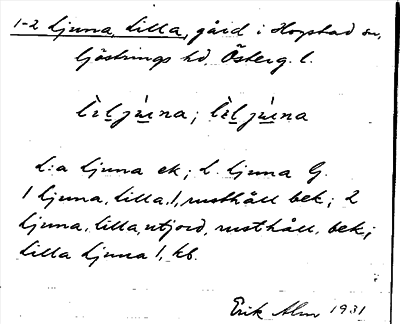 1-2 Ljuna, Lilla, gård i Hogstad sn,
Göstrings hd, Österg. l.
L:a Ljuna ek; L. Ljuna G.
1 Ljuna, Lilla, 1, rusthåll bek; 2
Ljuna, Lilla, utjord, rusthåll, bek;
Lilla Ljuna 1, kb.
Erik Alm 1931